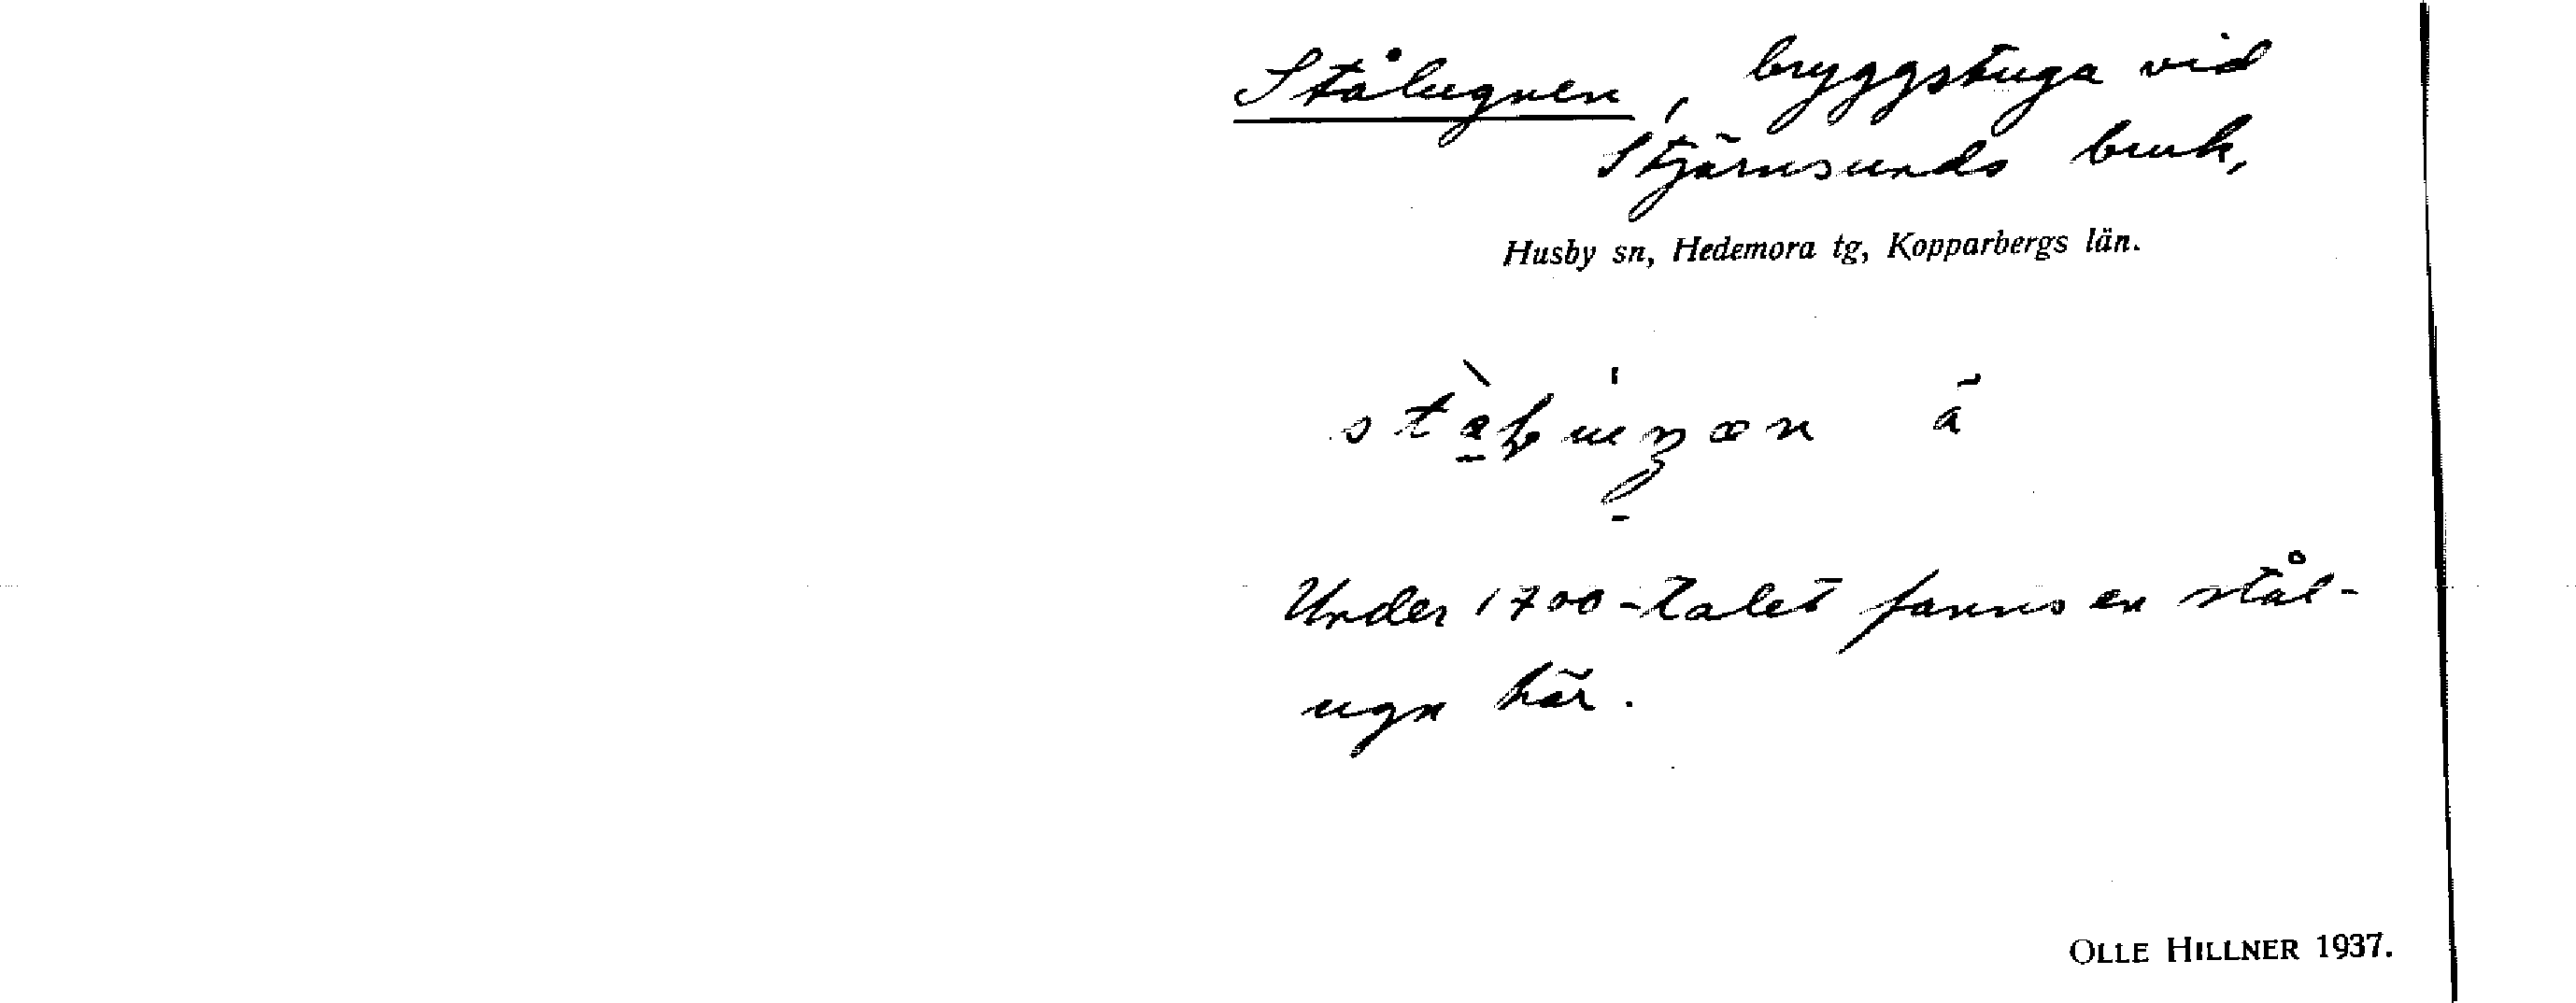 Stålugnen, bryggstuga vid
Stjärnsunds bruk,
Husby sn, Hedemora tg, Kopparbergs län.
Under 1700-talet fanns en stål-
ugn här.
OLLE HILLNER 1937.